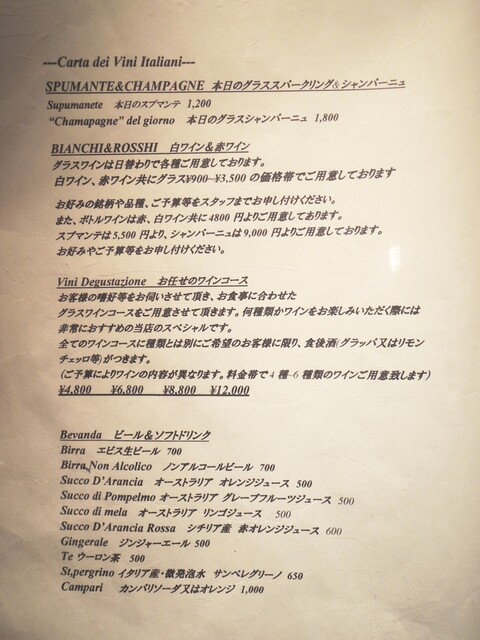 ---Carta dei Vini Italiani---
SPUMANTE&CHAMPAGNE 本日のグラススパークリング&シャンパーニュ
Supumanete 本日のスプマンテ 1,200
“Chamapagne” del giorno 本日のグラスシャンパーニュ 1,800
BIANCHI&ROSSHI 白ワイン&赤ワイン
グラスワインは日替わりで各種ご用意しております。
白ワイン、赤ワイン共にグラス¥900~¥3,500 の価格帯でご用意しております
お好みの銘柄や品種、ご予算等をスタッフまでお申し付けください。
また、ボトルワインは赤、白ワイン共に 4800 円よりご用意してあります。
スプマンテは 5,500 円より、シャンパーニュは 9,000 円よりご用意しております。
お好みやご予算等をお申し付けください。
Vini Degustazione お任せのワインコース
お客様の嗜好等をお伺いさせて頂き、お食事に合わせた
グラスワインコースをご用意させて頂きます。何種類かワインをお楽しみいただく際には
非常におすすめの当店のスペシャルです。
全てのワインコースに種類とは別にご希望のお客様に限り、食後酒(グラッパ又はリモン
チェッロ等)がつきます。
(ご予算によりワインの内容が異なります。料金帯で 4 種~6 種類のワインご用意致します)
¥4,800 ¥6,800 ¥8,800 ¥12,000
Bevanda ビール&ソフトドリンク
Birra エビス生ビール 700
Birra Non Alcolico ノンアルコールビール 700
Succo D’Arancia オーストラリア オレンジジュース 500
Succo di Pompelmo オーストラリア グレープフルーツジュース 500
Succo di mela オーストラリア リンゴジュース 500
Succo D’Arancia Rossa シチリア産 赤オレンジジュース 600
Gingerale ジンジャーエール 500
Te ウーロン茶 500
St,pergrino イタリア産・微発泡水 サンペレグリーノ 650
Campari カンパリソーダ又はオレンジ 1,000